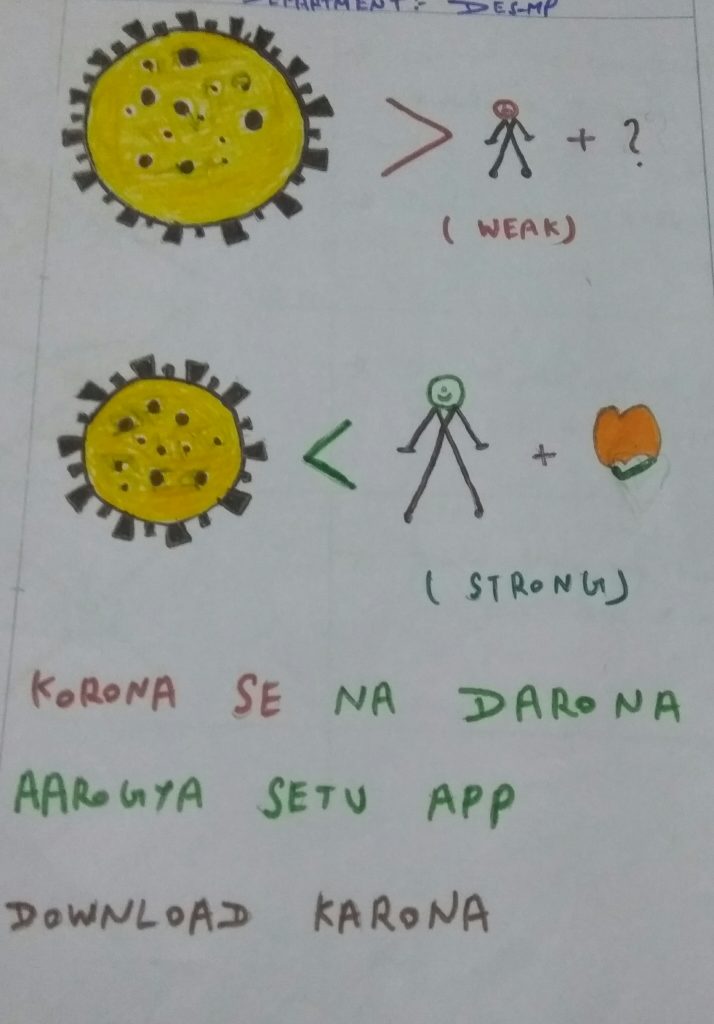 DEPARTMENT:- DES-MP
> + ?
( WEAK)
< +
( STRONG)
KORONA SE NA DARONA
AAROGYA SETU APP
DOWNLOAD KARONA